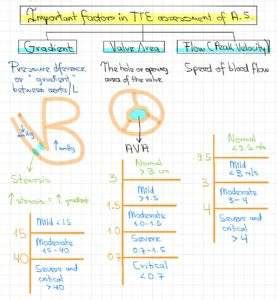 Important factors in TTE assessment of A.S.
Gradient
Pressure dference
or "gradient"
between aorta/L
Stenosis
↑ stenosis = ↑ gradient
Mild <15
15
Moderate
15-40
40
Severe and
critical
>40
Valve Area
The hole or opening
area of the valve
AVA
Normal
>3 cm
3
Mild
>1.5
1.5
Moderate
1.0-1.5
1.0
Severe
0.7-1.5
0.7
Critical
<0.7
Flow (Peak Velocity)
Speed of blood flow
Normal
Mild
3
Moderate
3-4
4
Severe and
critical
>4